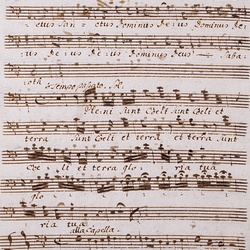 ctus San ctus Dominus De us Dominus De
us De us De us Dominus Deus Saba
oth Tempo
Pleni sunt Coeli sunt Coeli et
terra sunt Coeli et terra et terra sunt
Coe li et terra glo ria tua
glo
ria tua
alla Capella.